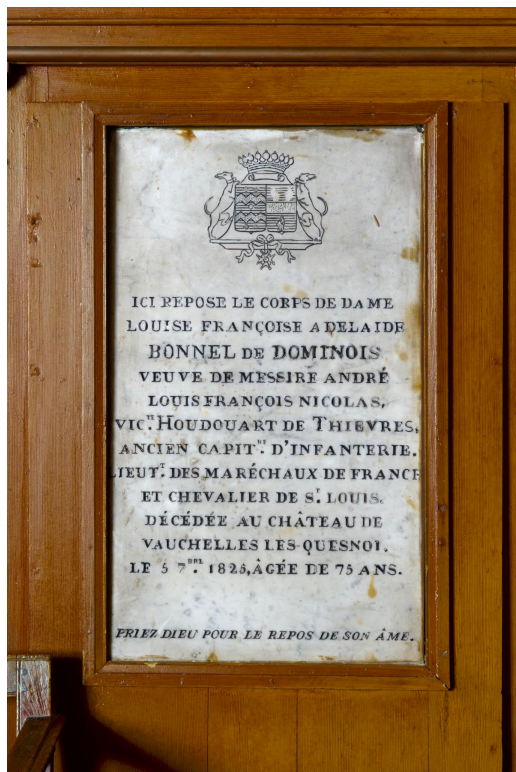 ICI REPOSE LE CORPS DE DAME
LOUISE FRANÇOISE ADELAIDE
BONNEL DE DOMINOIS
VEUVE DE MESSIRE ANDRÉ
LOUIS FRANÇOIS NICOLAS,
VIC.TE HOUDOUART DE THIEVRES,
ANCIEN CAPIT.NE D'INFANTERIE.
LIEUT.T DES MARÉCHAUX DE FRANCE
ET CHEVALIER DE S.T LOUIS.
DÉCÉDÉE AU CHÂTEAU DE
VAUCHELLES LES QUESNOI.
LE 5 7.BRE 1825, ÂGÉE DE 75 ANS.
PRIEZ DIEU POUR LE REPOS DE SON ÂME.